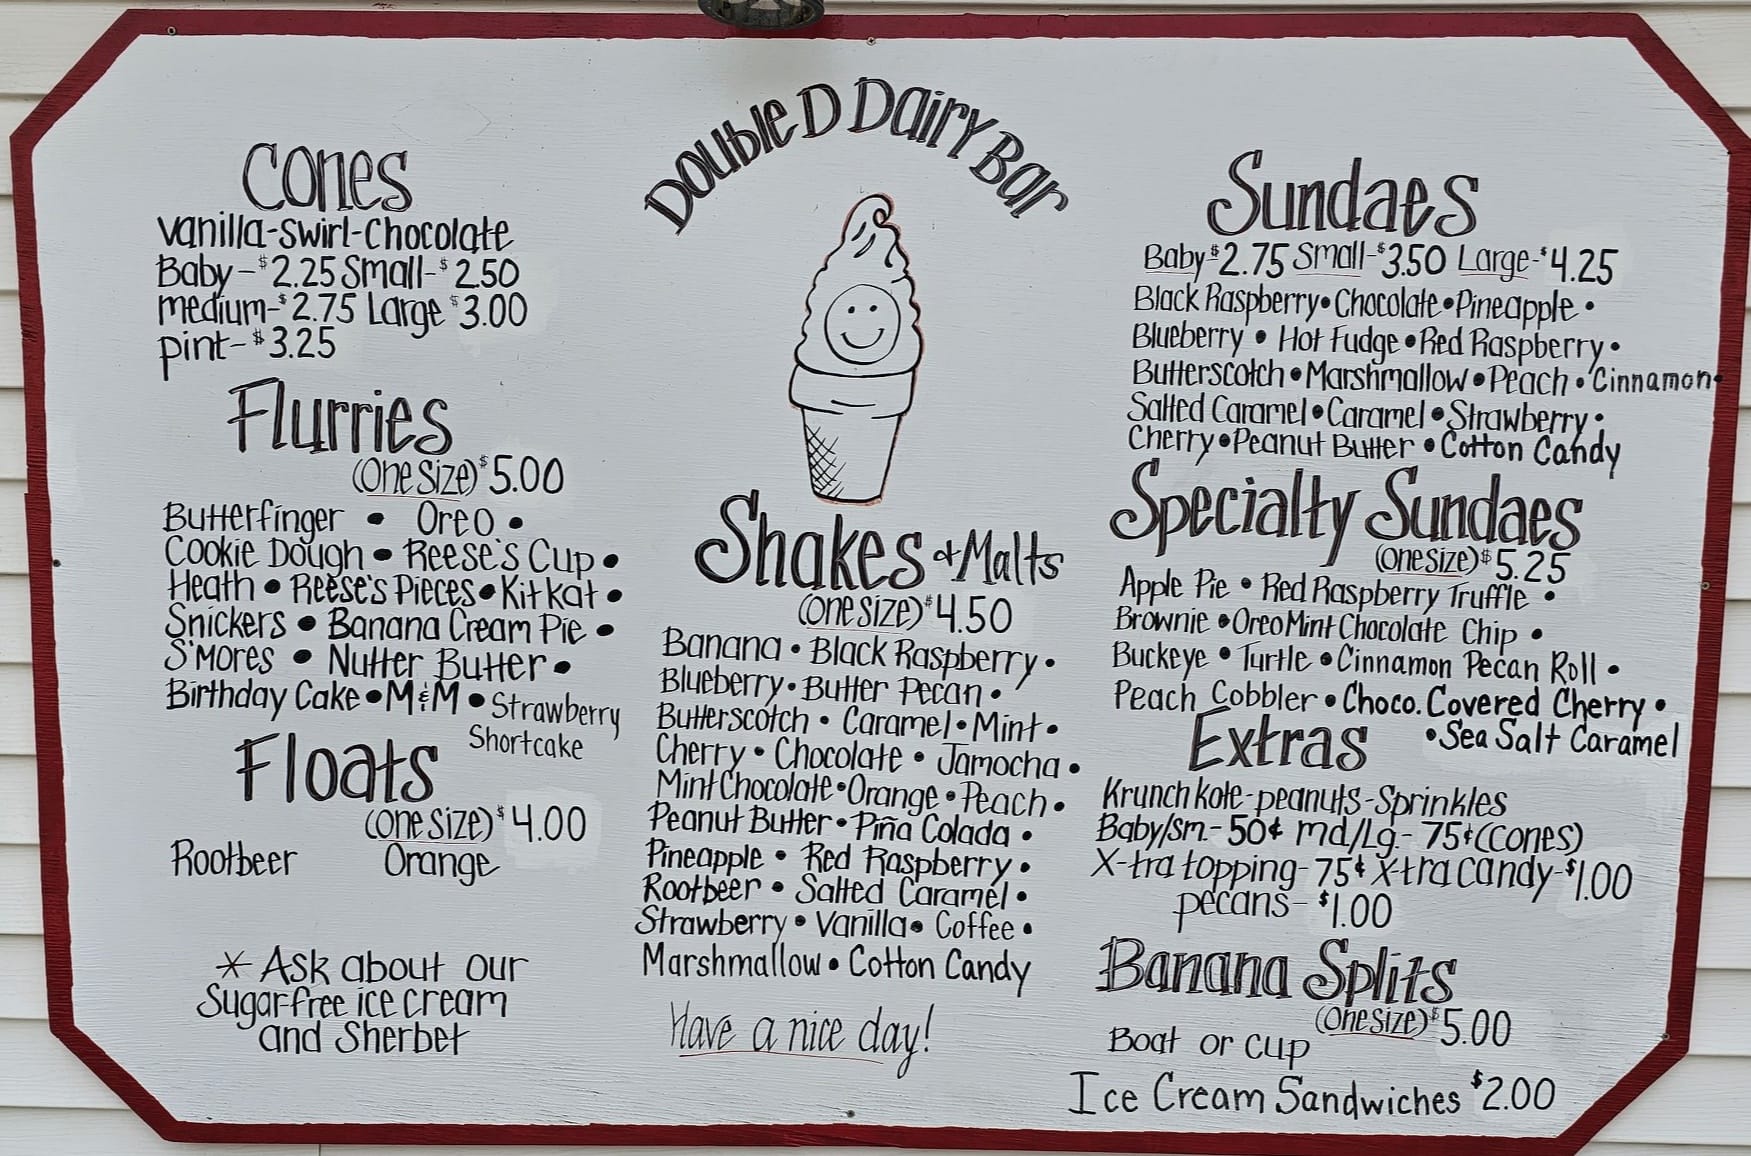 Double D Dairy Bar
Cones
Vanilla-Swirl-Chocolate
Baby-$2.25 Small-$2.50
medium-$2.75 Large $3.00
pint-$3.25
Flurries
(One Size) $5.00
Butterfinger • Oreo •
Cookie Dough • Reese's Cup •
Heath • Reese's Pieces • Kit Kat •
Snickers • Banana Cream Pie •
S'Mores • Nutter Butter •
Birthday Cake • M&M • Strawberry
Shortcake
Floats
(One Size) $4.00
Rootbeer Orange
* Ask about our
Sugar-free ice cream
and Sherbet
Shakes & Malts
(One Size) $4.50
Banana • Black Raspberry •
Blueberry • Butter Pecan •
Butterscotch • Caramel • Mint •
Cherry • Chocolate • Jamocha •
Mint Chocolate • Orange • Peach •
Peanut Butter • Piña Colada •
Pineapple • Red Raspberry •
Rootbeer • Salted Caramel •
Strawberry • Vanilla • Coffee •
Marshmallow • Cotton Candy
Have a nice day!
Sundaes
Baby $2.75 Small-$3.50 Large-$4.25
Black Raspberry • Chocolate • Pineapple •
Blueberry • Hot Fudge • Red Raspberry •
Butterscotch • Marshmallow • Peach • Cinnamon •
Salted Caramel • Caramel • Strawberry •
Cherry • Peanut Butter • Cotton Candy
Specialty Sundaes
(One Size) $5.25
Apple Pie • Red Raspberry Truffle •
Brownie • Oreo Mint Chocolate Chip •
Buckeye • Turtle • Cinnamon Pecan Roll •
Peach Cobbler • Choco. Covered Cherry •
• Sea Salt Caramel
Extras
Krunch Kote-peanuts-Sprinkles
Baby/Sm-50¢ md/Lg.-75¢ (cones)
X-tra topping-75¢ X-tra candy-$1.00
pecans-$1.00
Banana Splits
(One Size) $5.00
Boat or cup
Ice Cream Sandwiches $2.00